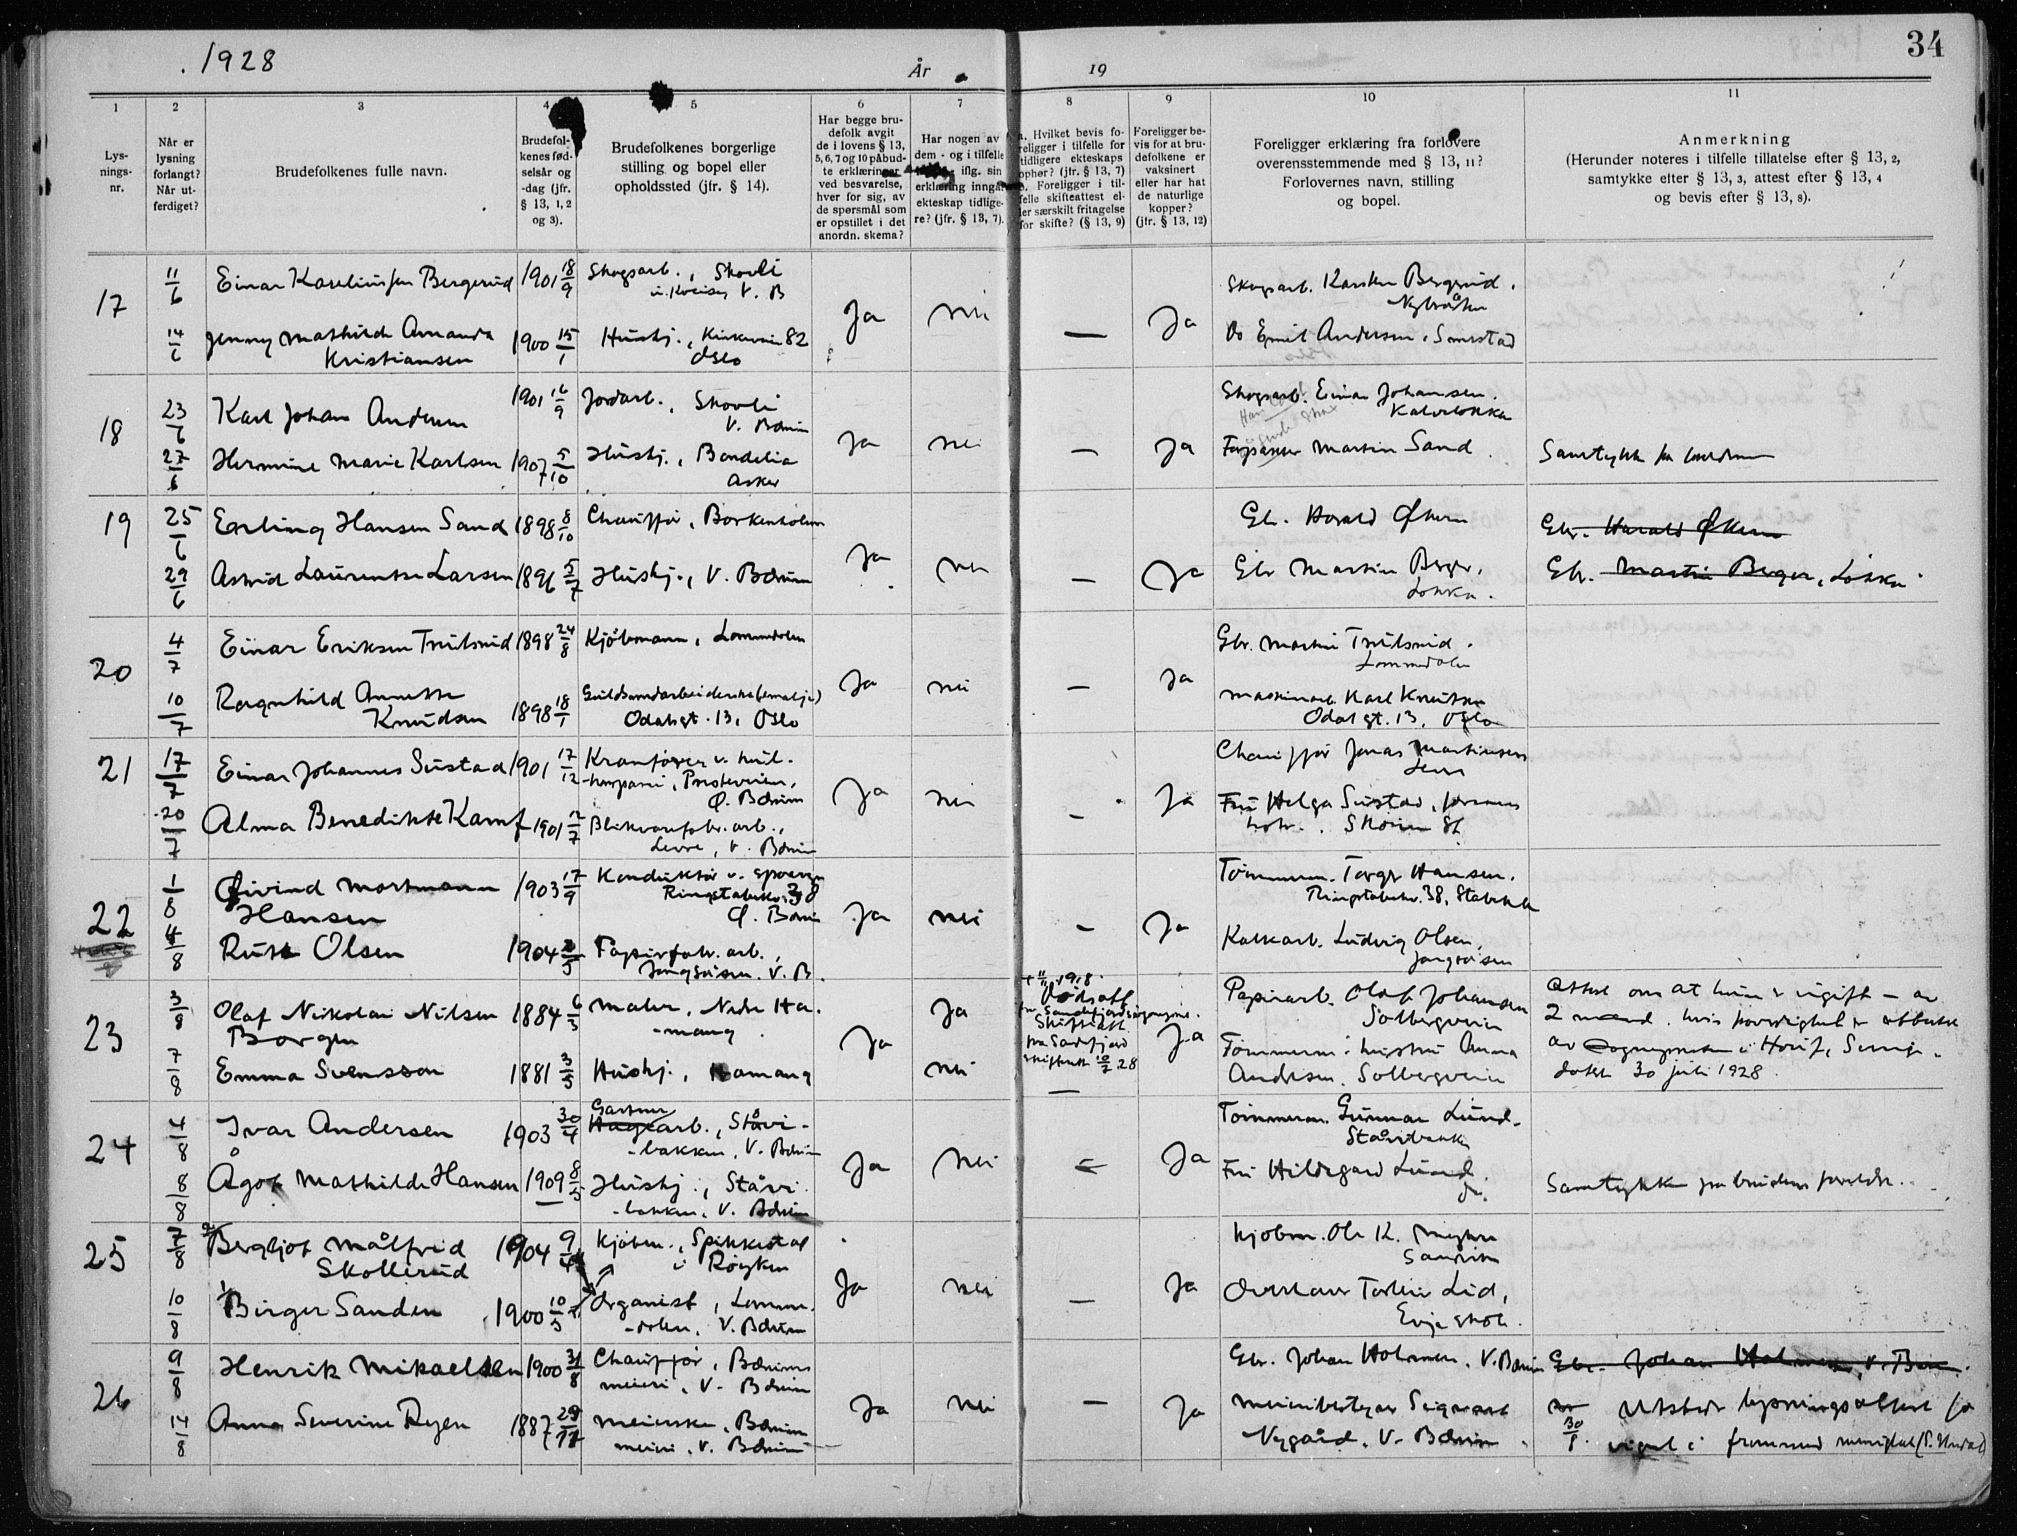 1928
År
19
34
1
2
3
4
5
6
7
8
9
10
11
Lys-
nings-
nr.
Når er
lysning
forlangt?
Når ut-
ferdiget?
Brudefolkenes fulle navn.
Brudefol-
kenes fød-
selsår og
-dag (jfr.
§ 13, 1, 2
og 3).
Brudefolkenes borgerlige
stilling og bopel eller
opholdssted (jfr. § 14).
Har begge bru-
defolk avgit
de i lovens § 13,
5, 6, 7 og 10 påbud-
te erklæringer
ved besvarelse,
hver for sig, av
de spørsmål som
er opstillet i det
anordn. skema?
Har nogen av
dem - og i tilfelle
iflg. sin
erklæring inngått
ekteskap tidlige-
re? (jfr. § 13, 7).
a. Hvilket bevis fo-
religger i tilfelle for
tidligere ekteskaps
ophør? (jfr. § 13, 7)
b. Foreligger i til-
felle skifteattest el-
ler særskilt fritagelse
for skifte? (§ 13, 9)
Foreligger be-
vis for at bru-
defolkene er
vaksinert
eller har hat
de naturlige
kopper?
(jfr. § 13, 12)
Foreligger erklæring fra forlovere
overensstemmende med § 13, 11?
Forlovernes navn, stilling
og bopel.
Anmerkning
(Herunder noteres i tilfelle tillatelse efter § 13, 2,
samtykke efter § 13, 3, attest efter § 13, 4
og bevis efter § 13, 8).
17
11/6
Einar Bergerud
1901 18/9
Skogsarb., Skovli
V. B
Ja
nei
—
Ja
Skogsarb. Karsten Bergerud.
14/6
Jenny Mathilde Amanda
Kristiansen
1900 15/1
Hushj., 82
Oslo
Do Emil Andersen, Smestad
18
23/6
Karl Johan Andersen
1901 16/9
Jordarb., Skovli
V. Bærum
Ja
nei
—
Ja
Skogsarb. Einar Johansen.
Kalveløkka
27/6
Hermine Marie Karlsen
1907 5/10
Hushj., Bondelia
Asker
Martin Sand
Samtykke fra
19
25/6
Erling Hansen Sand
1898 8/10
Chauffør, Borkenholm
Ja
nei
—
Ja
Gbr. Harald Økern
Gbr. Harald Økern
29/6
Astrid Laurentse Larsen
1896 5/7
Hushj., V. Bærum
Gbr Martin Berger,
Løkka.
Gbr. Martin Berger, Løkka
20
4/7
Einar Eriksen Trulsrud
1898 24/8
Kjøbmann, Lommedalen
Ja
nei
—
Ja
Gbr. Martin Trulsrud.
Lommedalen
10/7
Ragnhild Annette
Knudsen
1898 18/1
Gullsmedarbeiderske (emalje)
Odalsgt. 13, Oslo
Maskinarb. Karl Knudsen
Odalsgt. 13, Oslo
21
17/7
Einar Johannes Sustad
1901 17/12
Kranfører v. kul-
-kompani, Presteveien,
Ø. Bærum
Ja
nei
—
Ja
Chauffør Jonas Martinsen
20/7
Alma Benedikte Kamf
1901 12/7
Blikvarefabr. arb.,
Levre, V. Bærum
Fru Helga Sustad,
22
1/8
Øivind Mortmann
Hansen
1903 17/9
Konduktør v. sporveien
Ringstabekv. 38
Ø. Bærum
Ja
nei
—
Ja
Tømmerm. Torger Hansen.
Ringstabekv. 38, Stabekk
4/8
Ruth Olsen
1904 2/5
Papirfabr. arb.,
Jongsåsen. V. B.
Kalkarb. Ludvig Olsen,
Jongsåsen
23
3/8
Olaf Nikolai Nilsen
Borgen
1884 6/3
Maler, Nedre Ha-
-mang
Ja
Ja
1918
Dødsatt.
fra Sandefjord
Skifteatt.
fra Sandefjord
skifterett 10/7 28
Ja
Papirarb. Olaf Johansen
Solbergveien
Attest om at hun er ugift – av
2 mænd. hvis troverdighet er attestert
av Sogneprest i
datert 30 juli 1928.
7/8
Emma Svensson
1881 3/5
Hushj., Hamang
nei
—
Tømmerm. hustru Anna
Andersen. Solbergveien
24
4/8
Ivar Andersen
1903 30/4
Gartner
Hagearb., Ståvi-
-bakken, V. Bærum
Ja
nei
—
Ja
Tømmerm. Gunnar Lund.
Ståvibakken
8/8
Ågot Mathilde Hansen
1909 8/5
Hushj., Ståvi-
-bakken, V. Bærum
Fru Hildegard Lund.
do.
Samtykke fra brudens foreldre.
25
7/8
2 Bergljot Målfrid
Skollerud
1904 9/4
Kjøbm., Spikkestad
i Røyken
Ja
nei
—
Ja
Kjøbm. Ole K.
Sandvika
10/8
1 Birger Sanden
1900 10/5
Organist, Lomme-
-dalen, V. Bærum
Overlærer Torleiv Lid,
Evje skole.
26
9/8
Henrik Mikaelsen
1900 31/8
Chauffør, Bærums
meieri, V. Bærum
Ja
nei
—
Ja
Gbr. Johan Holmen, V. Bærum
Gbr. Johan Holmen, V. Bærum.
14/8
Anna Severine Ryen
1887 29/11
Meierske, Bærums
meieri, V. Bærum
Meieribestyrer Sigurd
Nygård, V. Bærum
30/8. Utstedt lysningsattest for
vigsel i fremmed menighet